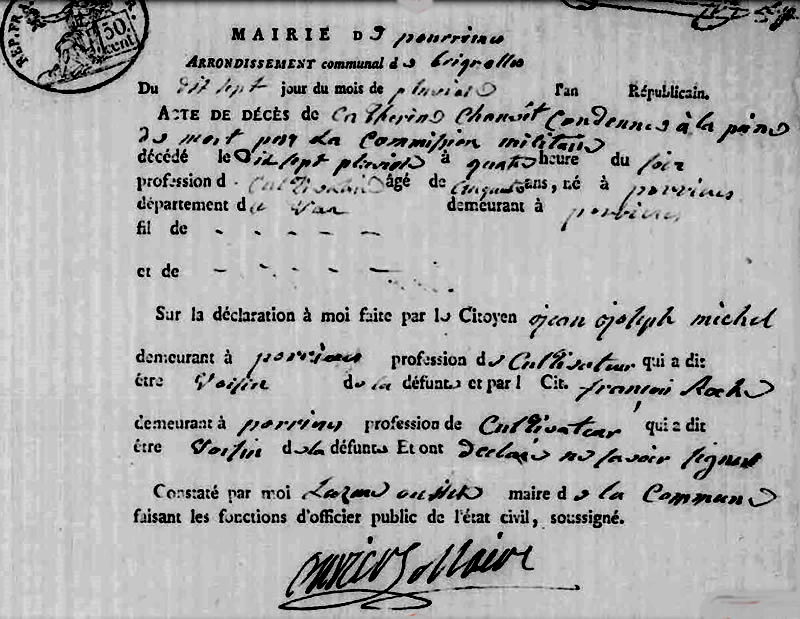 REP. FRA
50 cent.
MAIRIE DE pourrieres
ARRONDISSEMENT communal de brignolles
Du dit sept jour du mois de pluviose l'an Républicain.
ACTE DE DÉCÈS de Catherine Condennée à la peine
de mort par La Commission militaire
décédé le dit sept pluviose à quatre heure du soir
profession d âgé de ans, né à porrieres
département du Var demeurant à porrieres
fil de - - - - -
et de - - - - -
Sur la déclaration à moi faite par le Citoyen jean joseph michel
demeurant à porrieres profession de Cultivateur qui a dit
être Voisin de la défunte et par l Cit. françois Roche
demeurant à porrieres profession de Cultivateur qui a dit
être Voisin de la défunte Et ont declaré ne savoir signer
Constaté par moi Lazare maire de la Commune
faisant les fonctions d'officier public de l'état civil, soussigné.